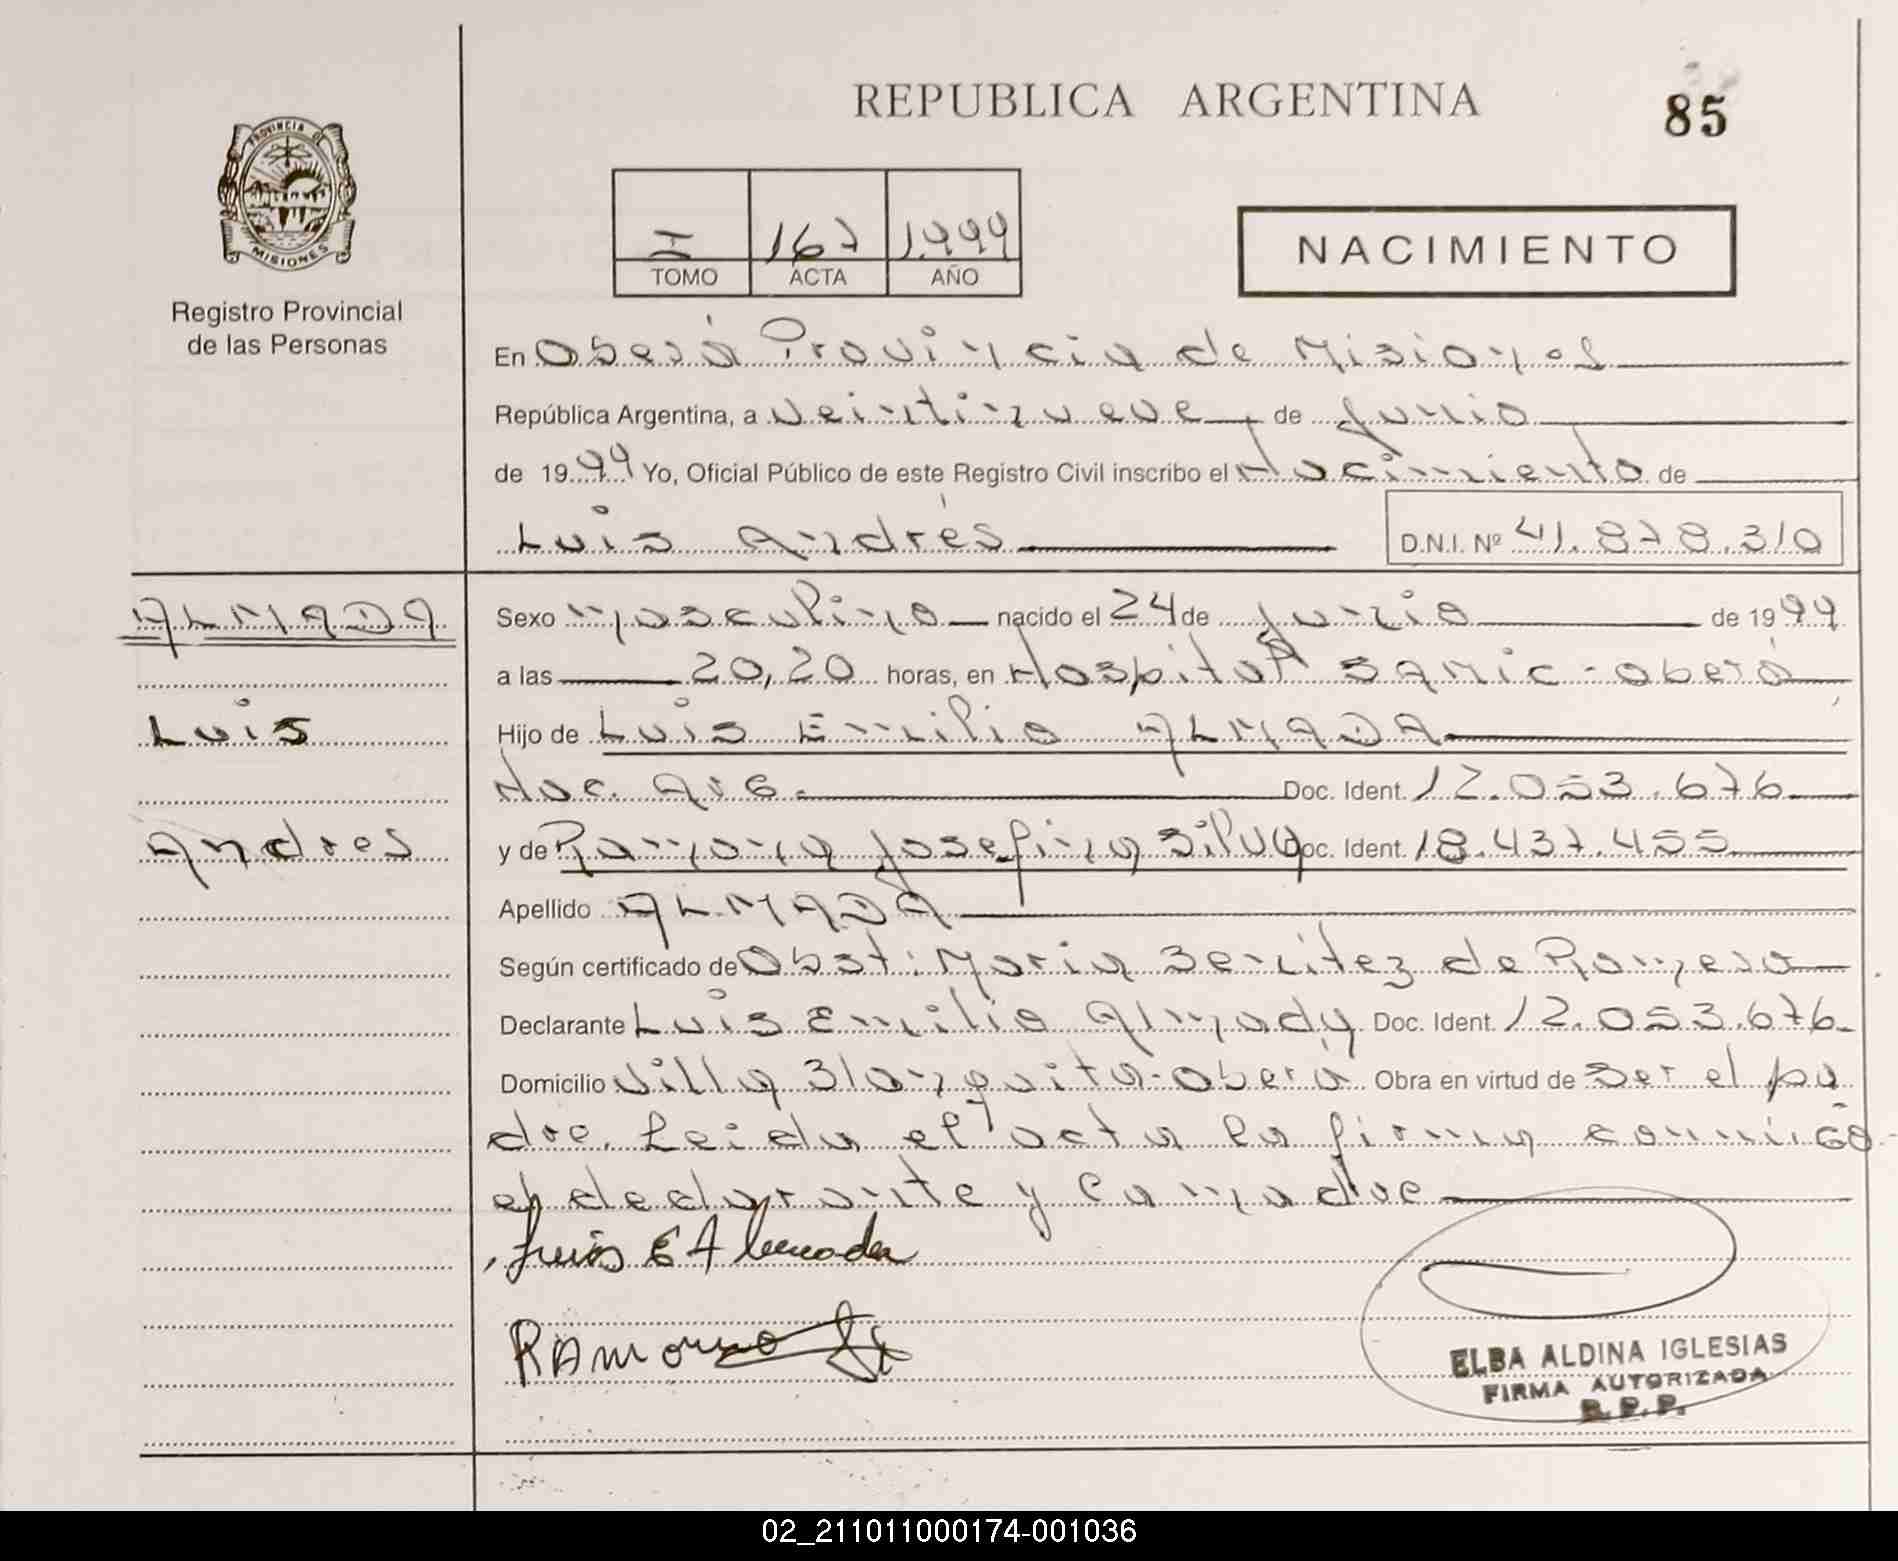 REPUBLICA ARGENTINA
85
PROVINCIA DE
MISIONES
Registro Provincial
de las Personas
I 167 1.999
TOMO ACTA AÑO
NACIMIENTO
En Oberá Provincia de Misiones
República Argentina, a veintinueve de Junio
de 1999 Yo, Oficial Público de este Registro Civil inscribo el Nacimiento de
Luis Andrés D.N.I. Nº 41.878.310
ALMADA
Luis
Andres
Sexo masculino nacido el 24 de Junio de 1999
a las 20,20 horas, en Hospital SAMIC - Oberá
Hijo de Luis Emilio ALMADA
Nac. Arg. Doc. Ident. 12.053.676
y de Ramona Josefina Silva Doc. Ident. 18.437.455
Apellido ALMADA
Según certificado de Obst: Maria Benitez de Romero
Declarante Luis Emilio Almada Doc. Ident. 12.053.676
Domicilio Villa Blanquita - Oberá Obra en virtud de ser el pa
dre. Leida el acta la firma conmigo
el declarante y la madre
Luis E Almada
Ramona
ELBA ALDINA IGLESIAS
FIRMA AUTORIZADA
R.P.P.
02_211011000174-001036